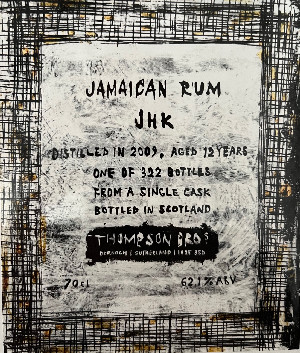 JAMAICAN RUM
JHK
DISTILLED IN 2009, AGED 12 YEARS
ONE OF 322 BOTTLES
FROM A SINGLE CASK
BOTTLED IN SCOTLAND
THOMPSON BROS
DORNOCH | SUTHERLAND | IV25 3SD
70cl 62.1% ABV